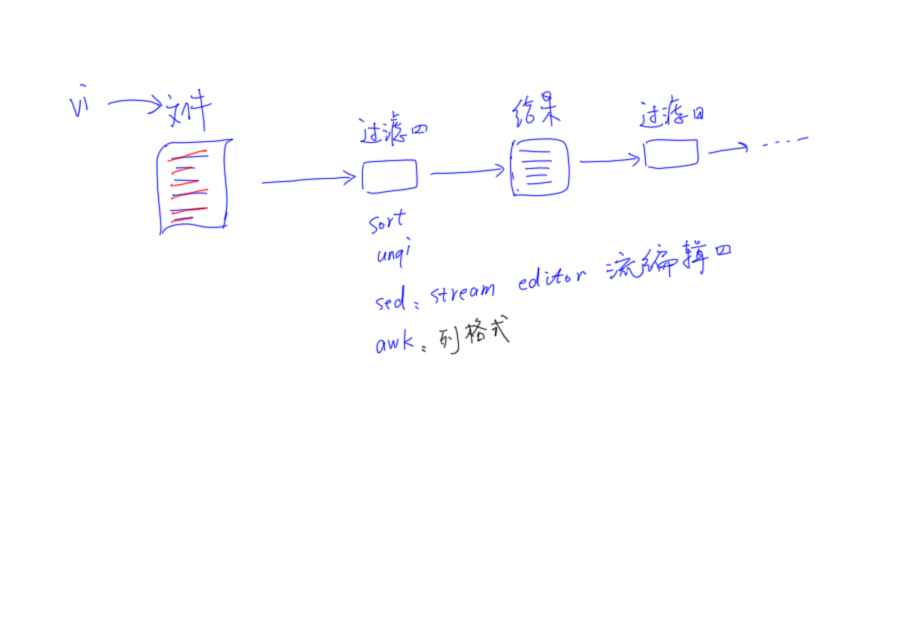 vi
文件
过滤
结果
过滤
.....
sort
unqi
sed: stream editor 流编辑
awk: 列格式